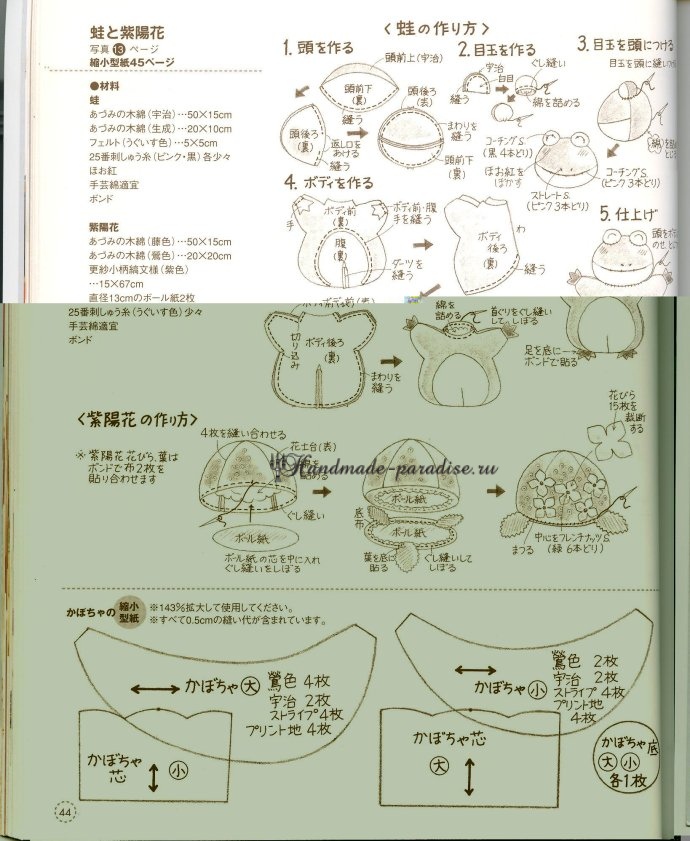 蛙と紫陽花
写真13ページ
縮小型紙45ページ
●材料
蛙
あづみの木綿(宇治)…50×15cm
あづみの木綿(生成)…20×10cm
フェルト(うぐいす色)…5×5cm
25番刺しゅう糸(ピンク・黒)各少々
ほお紅
手芸綿適宜
ボンド
紫陽花
あづみの木綿(藤色)…50×15cm
あづみの木綿(鶯色)…20×20cm
更紗小柄縞文様(紫色)
…15×67cm
直径13cmのボール紙2枚
25番刺しゅう糸(うぐいす色)少々
手芸綿適宜
ボンド
〈蛙の作り方〉
1. 頭を作る
頭前上(宇治)
頭前下
(裏)
縫う
頭後ろ
(裏)
返し口を
あける
縫う
頭後ろ
(表)
まわりを
縫う
頭前下
(裏)
2. 目玉を作る
宇治
白目
縫う
ぐし縫い
綿を詰める
3. 目玉を頭につける
目玉を頭に縫いつ
コーチングS.
(黒4本どり)
ほお紅を
ぼかす
ストレートS.
(ピンク3本どり)
コーチングS.
(ピンク3本どり)
4. ボディを作る
手
ボディ前
(裏)
腹
(裏)
ボディ前・腹
手を縫う
ダーツを
縫う
わ
ボディ
後ろ
(裏)
縫う
切り込み
ボディ後ろ
(裏)
まわりを
縫う
綿を
詰める
首ぐりをぐし縫い
して、しぼる
5. 仕上げ
足を底に
ボンドで貼る
〈紫陽花の作り方〉
※紫陽花花びら、葉は
ボンドで布2枚を
貼り合わせます
4枚を縫い合わせる
花土台(表)
詰める
ぐし縫い
ボール紙
ボール紙の芯を中に入れ
ぐし縫いをしぼる
ボール紙
底布
ボール紙
葉を底に
貼る
ぐし縫いして
しぼる
花びら
15枚を
裁断
する
まつる
中心をフレンチナッツS.
(緑 6本どり)
Handmade-paradise.ru
かぼちゃの縮小型紙
※143%拡大して使用してください。
※すべて0.5cmの縫い代が含まれています。
かぼちゃ大
鶯色 4枚
宇治 2枚
ストライプ 4枚
プリント地 4枚
かぼちゃ芯
小
かぼちゃ小
鶯色 2枚
宇治 2枚
ストライプ 4枚
プリント地
4枚
かぼちゃ芯
大
かぼちゃ底
大 小
各1枚
44